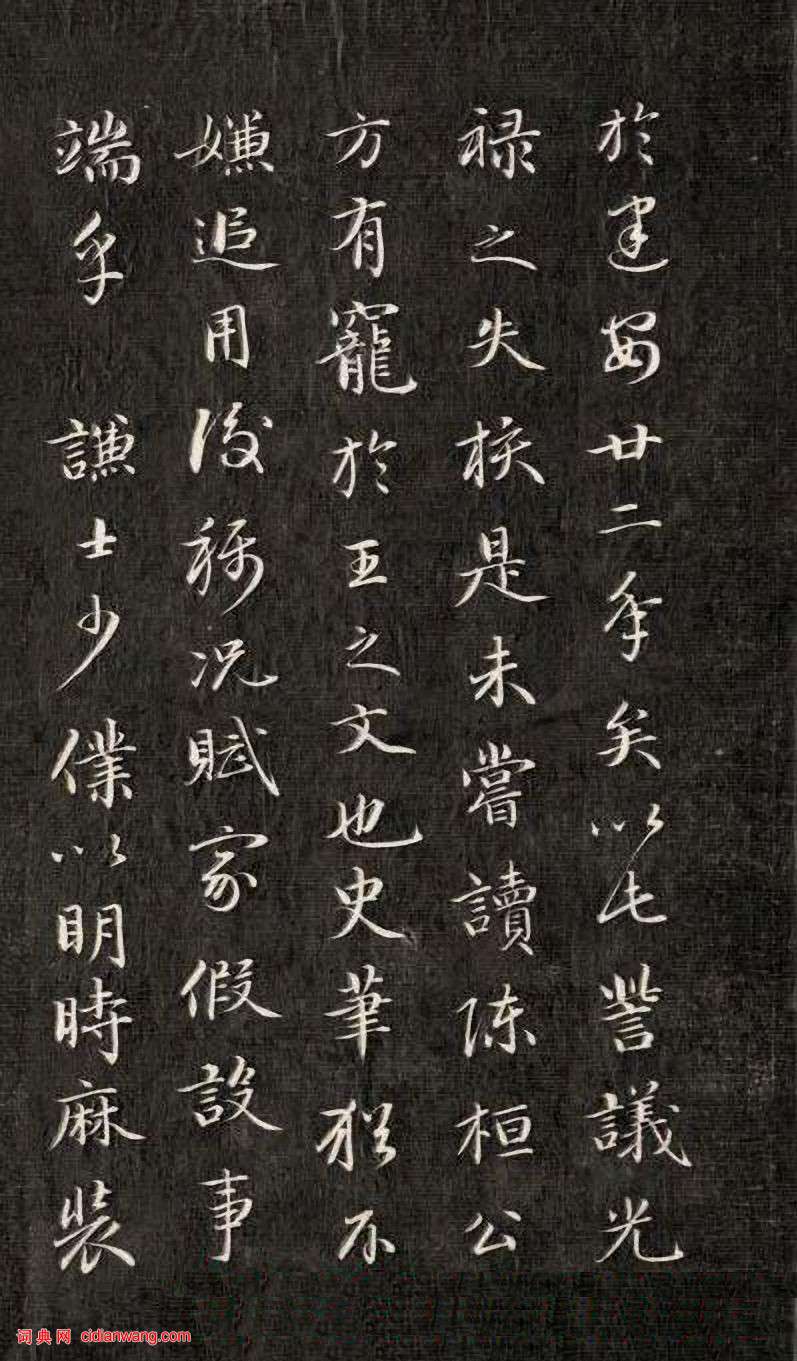 於建安廿二年矣以此訾議光
禄之失核是未嘗讀陈桓公
方有寵於王之文也史筆猶不
嫌追用後称况賦家假設事
端乎 謙士少僕以明時麻裝
词典网 cidianwang.com